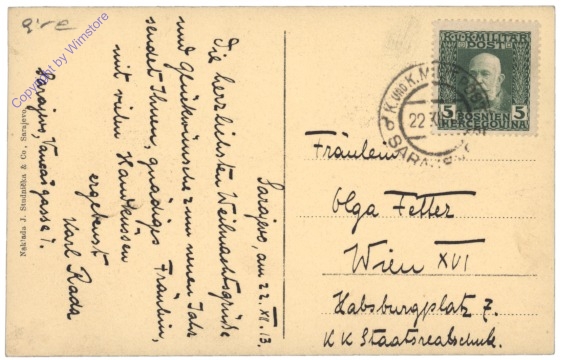 Sarajevo, am 22. XII. 13.
Die herzlichsten Weihnachtsgrüße
und Glückwünsche zum neuen Jahr
sendet Ihnen, gnädiges Fräulein,
mit vielen Handküssen
ergebenst
Karl Rada
Sarajevo,
Naklada J. Studnička & Co., Sarajevo
Copyright by Wimstore
K.u.K. MILITÄR
POST
5 5
BOSNIEN
HERCEGOVINA
K. UND K. MILIT. POST
22
SARAJEVO
Fräulein
Olga Fetter
Wien XVI
Habsburgplatz 7.
K K Staatsrealschule.